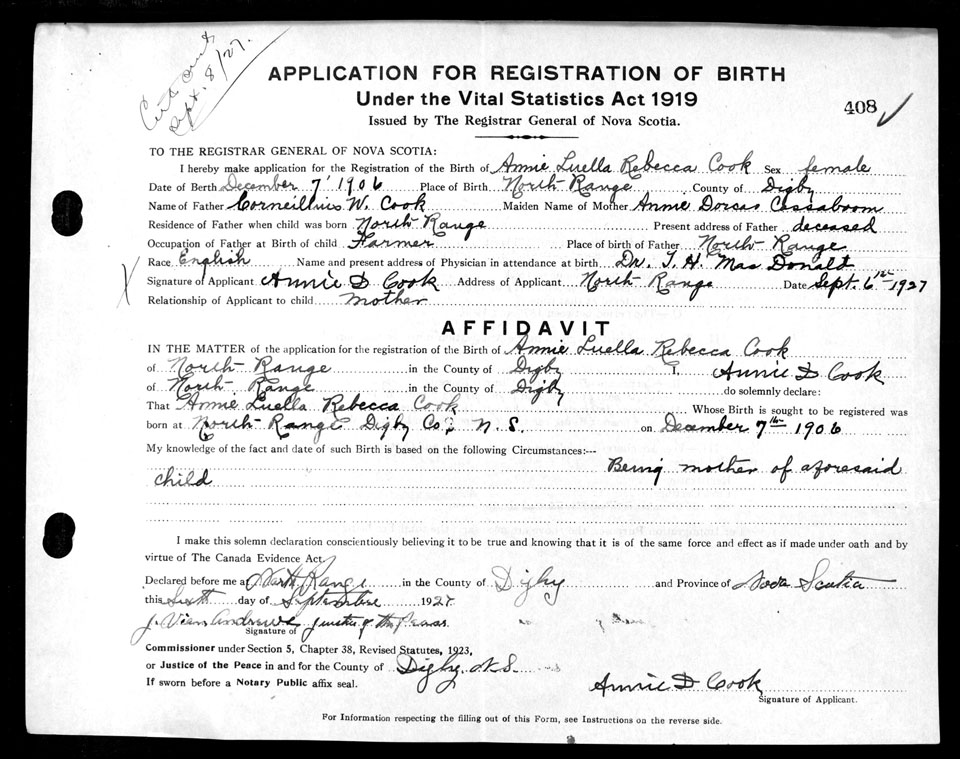 Cert out
Sept. 8/27.
APPLICATION FOR REGISTRATION OF BIRTH
Under the Vital Statistics Act 1919
Issued by The Registrar General of Nova Scotia.
408
TO THE REGISTRAR GENERAL OF NOVA SCOTIA:
I hereby make application for the Registration of the Birth of Annie Luella Rebecca Cook Sex female
Date of Berth December 7' 1906 Place of Birth North Range County of Digby
Name of Father Corneillius W. Cook Maiden Name of Mother Annie Dorcas Cossaboom
Residence of Father when child was born North Range Present address of Father deceased
Occupation of Father at Birth of child Farmer Place of birth of Father North Range
Race English Name and present address of Physician in attendance at birth Dr. J. H. Mac Donald
Signature of Applicant Annie D Cook Address of Applicant North Range Date Sept. 6th 1927
Relationship of Applicant to child mother
AFFIDAVIT
IN THE MATTER of the application for the registration of the Birth of Annie Luella Rebecca Cook
of North Range in the County of Digby I, Annie D Cook
of North Range in the County of Digby do solemnly declare:
That Annie Luella Rebecca Cook Whose Birth is sought to be registered was
born at North Range Digby Co; N. S. on December 7th 1906
My knowledge of the fact and date of such Birth is based on the following Circumstances:---
Being mother of aforesaid
child
I make this solemn declaration conscientiously believing it to be true and knowing that it is of the same force and effect as if made under oath and by
virtue of The Canada Evidence Act.
Declared before me at North Range in the County of Digby and Province of Nova Scotia
this Sixth day of September 1927
J. Andrews Justice of the Peace
Signature of
Commissioner under Section 5, Chapter 38, Revised Statutes, 1923,
or Justice of the Peace in and for the County of Digby N.S.
If sworn before a Notary Public affix seal.
Annie D Cook
Signature of Applicant.
For Information respecting the filling out of this Form, see Instructions on the reverse side.